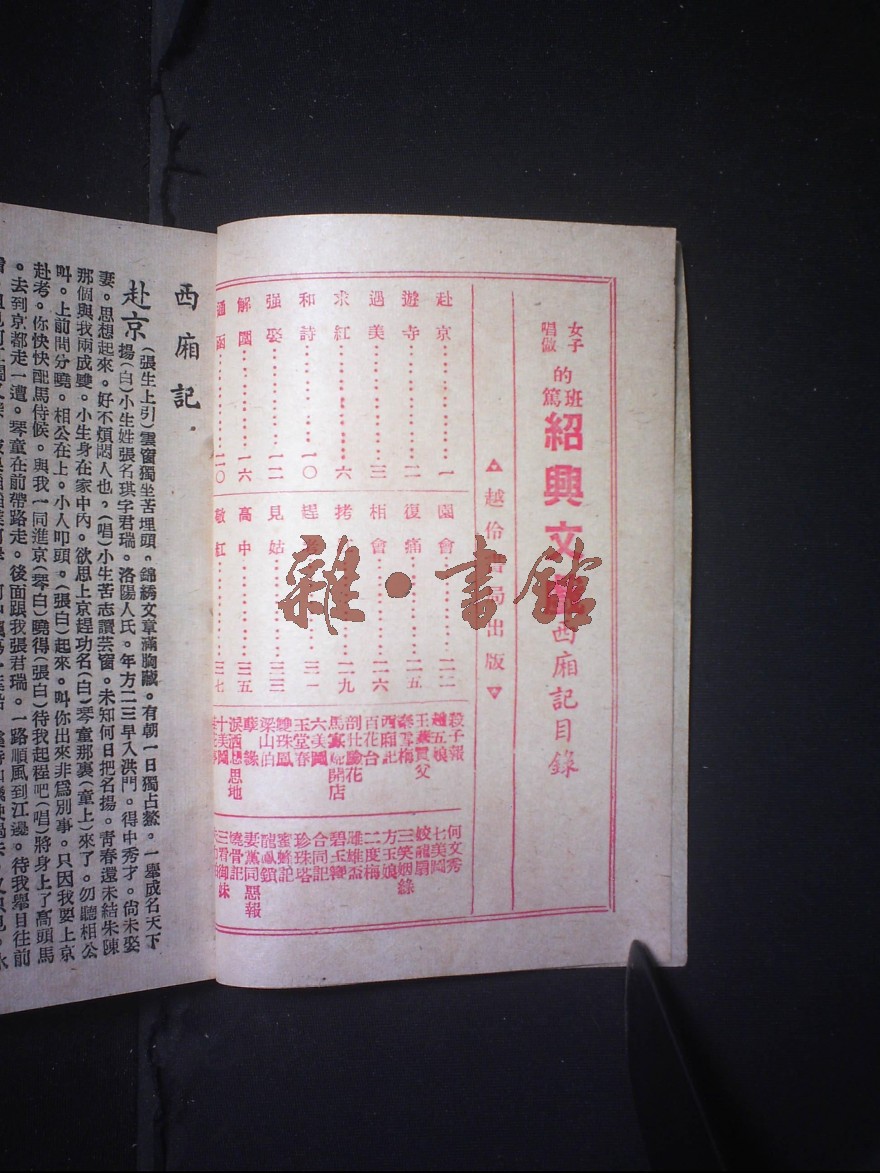 女子
唱做
的
篤班
紹興文
西廂記目錄
越伶書局出版
赴京 一
遊寺 二
遇美 三
求紅 六
和詩 一〇
强娶 一二
解圍 一六
一〇
園會 二二
復病 二五
相會 二六
拷 二九
三一
見姑 三三
高中 三五
紅 三七
殺子報
趙五娘
王華買父
秦雪梅
西廂記
百花台
剖肚驗花
馬寡婦開店
六美圖
玉堂春
雙珠鳳
梁山伯
孽緣
淚洒相思地
十美圖
何文秀
七美圖
蛟龍扇
三笑姻緣
方玉娘
二度梅
雌雄盃
碧玉簪
合同記
珍珠塔
蜜蜂記
龍鳳鎖
妻黨同惡報
燒骨記
三看御妹
雜·書舘
西廂記
赴京
(張生上引)雲窗獨坐苦埋頭。錦綉文章滿胸藏。有朝一日獨占鰲。一舉成名天下
揚(白)小生姓張名琪字君瑞。洛陽人氏。年方二三早入洪門。得中秀才。尙未娶
妻。思想起來。好不煩悶人也。(唱)小生苦志讀芸窗。未知何日把名揚。靑春還未結朱陳
那個與我兩成雙。小生身在家中內。欲思上京趕功名(白)琴童那裏(童上)來了。勿聽相公
叫。上前問分曉。相公在上。小人叩頭。(張白)起來。叫你出來非爲別事。只因我要上京
赴考。你快快配馬侍候。與我一同進京(琴白)曉得(張白)待我起程吧(唱)將身上了高頭馬
。去到京都走一遭。琴童在前帶路走。後面跟我張君瑞。一路順風到江邊。待我舉目往前